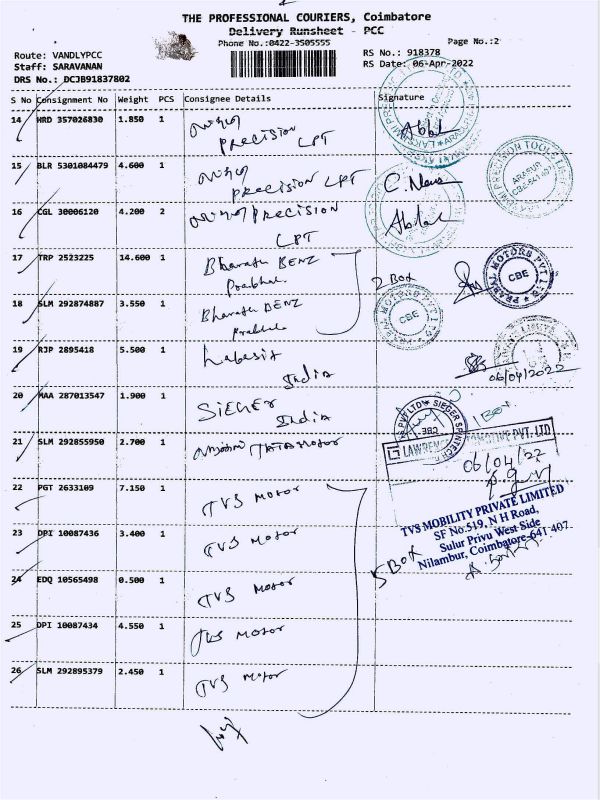 THE PROFESSIONAL COURIERS, Coimbatore
Delivery Runsheet - PCC
Phone No.:0422-3505555
Page No.:2
Route: VANDLYPCC
RS No.: 918378
Staff: SARAVANAN
RS Date: 06-Apr-2022
DRS No.: DCJB91837802
S No Consignment No Weight PCS Consignee Details Signature
14 HRD 357026830 1.850 1
precision LPT
15 BLR 5301084479 4.600 1
precision LPT
16 CGL 30006120 4.200 2
precision
LPT
17 TRP 2523225 14.600 1 Bharath BENZ
Prabhal
2 Box
18 SLM 292874887 3.550 1 Bharath BENZ
Prabhal
19 RJP 2895418 5.500 1
India
06/04/2022
20 MAA 287013547 1.900 1 SIEGER
India
1 Box
21 SLM 292855950 2.700 1 TATA Motor
LAWRENCE AUTOMOTIVE PVT. LTD
06/04/22
22 PGT 2633109 7.150 1 TVS Motor
TVS MOBILITY PRIVATE LIMITED
SF No.519, N H Road,
Sulur Privu West Side
Nilambur, Coimbatore-641 407.
23 DPI 10087436 3.400 1 TVS Motor
5 Box
24 EDQ 10565498 0.500 1 TVS Motor
25 DPI 10087434 4.550 1 TVS Motor
26 SLM 292895379 2.450 1 TVS Motor
PRABAL MOTORS PVT LTD
CBE
CBE
PRECISION TOOLS
ARASUR
CBE-641 407
SIEGER SPINTECH
PVT LTD
CBE